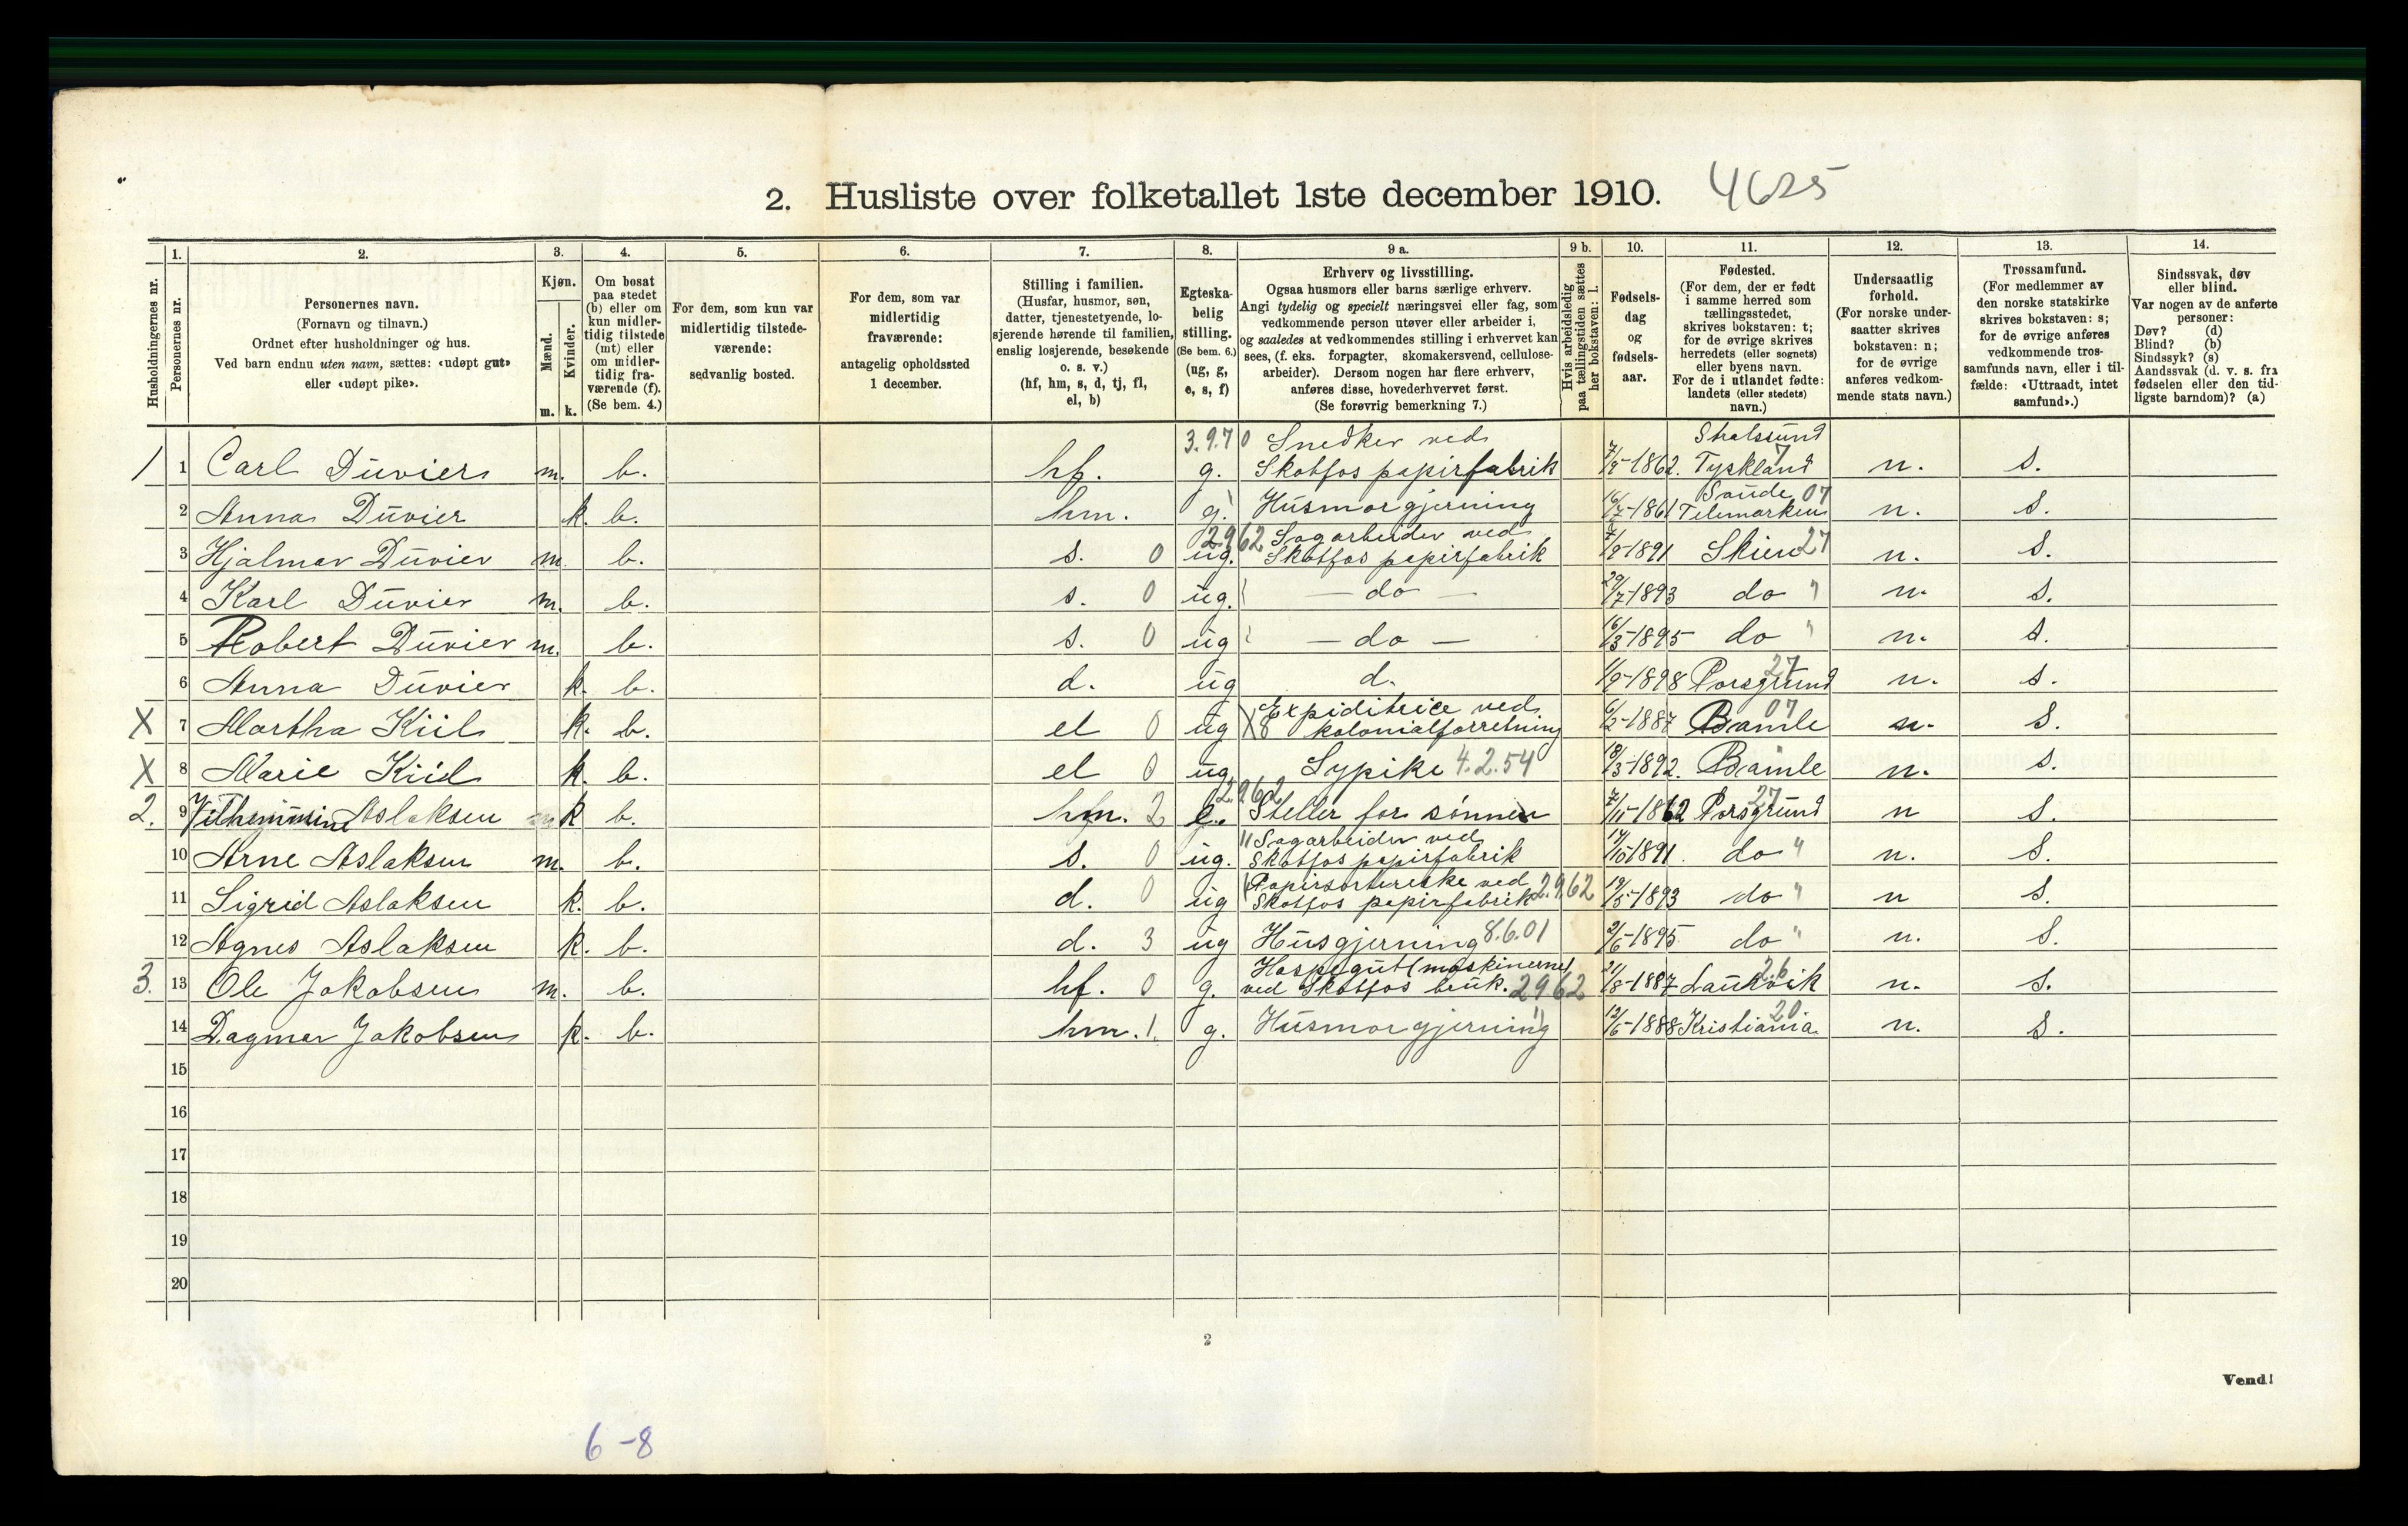 2. Husliste over folketallet 1ste december 1910. 4625
Husholdningernes nr.
1. Personernes nr.
2. Personernes navn.
(Fornavn og tilnavn.)
Ordnet efter husholdninger og hus.
Ved barn endnu uten navn, sættes: «udøpt gut»
eller «udøpt pike».
3. Kjøn.
Mænd. m.
Kvinder. k.
4. Om bosat
paa stedet
(b) eller om
kun midler-
tidig tilstede
(mt) eller
om midler-
tidig fra-
værende (f).
(Se bem. 4.)
5. For dem, som kun var
midlertidig tilstede-
værende:
sedvanlig bosted.
6. For dem, som var
midlertidig
fraværende:
antagelig opholdssted
1 december.
7. Stilling i familien.
(Husfar, husmor, søn,
datter, tjenestetyende, lo-
sjerende hørende til familien,
enslig losjerende, besøkende
o. s. v.)
(hf, hm, s, d, tj, fl,
el, b)
8. Egteska-
belig
stilling.
(Se bem. 6.)
(ug, g,
e, s, f)
9 a. Erhverv og livsstilling.
Ogsaa husmors eller barns særlige erhverv.
Angi tydelig og specielt næringsvei eller fag, som
vedkommende person utøver eller arbeider i,
og saaledes at vedkommendes stilling i erhvervet kan
sees, (f. eks. forpagter, skomakersvend, cellulose-
arbeider). Dersom nogen har flere erhverv,
anføres disse, hovederhvervet først.
(Se forøvrig bemerkning 7.)
9 b. Hvis arbeidsledig
paa tællingstiden sættes
her bokstaven: l.
10. Fødsels-
dag
og
fødsels-
aar.
11. Fødested.
(For dem, der er født
i samme herred som
tællingsstedet,
skrives bokstaven: t;
for de øvrige skrives
herredets (eller sognets)
eller byens navn.
For de i utlandet fødte:
landets (eller stedets)
navn.)
12. Undersaatlig
forhold.
(For norske under-
saatter skrives
bokstaven: n;
for de øvrige
anføres vedkom-
mende stats navn.)
13. Trossamfund.
(For medlemmer av
den norske statskirke
skrives bokstaven: s;
for de øvrige anføres
vedkommende tros-
samfunds navn, eller i til-
fælde: «Uttraadt, intet
samfund».)
14. Sindssvak, døv
eller blind.
Var nogen av de anførte
personer:
Døv? (d)
Blind? (b)
Sindssyk? (s)
Aandssvak (d. v. s. fra
fødselen eller den tid-
ligste barndom)? (a)
3.9.7 0 Snedker ved Stralsund
1 1 Carl Düvier m. b. hf. g. Skotfos papirfabrik 7/5-1862. Tyskland 7 n. s.
Saude 07
2 Anna Düvier k. b. hm. g. Husmorgjerning 16/7-1861 Telemarken n. s.
2962 Sagarbeider ved
3 Hjalmar Düvier m. b. s. 0 ug. Skotfos papirfabrik 7/9-1891 Skien 27 n. s.
4 Karl Düvier m. b. s. 0 ug. — do — 29/7-1893 do " n. s.
5 Robert Düvier m. b. s. 0 ug — do — 16/3-1895 do " n. s.
6 Anna Düvier k. b. d. ug d. 1/9-1898 Porsgrund 27 n. s.
Expiditrice ved 07
X 7 Martha Kiil k. b. el 0 ug X8 kolonialforretning 6/2-1887 Bamle n. s.
X 8 Marie Kiil k. b. el 0 ug Sypike 4.2.54 18/3-1892. Bamle n. s.
2962
2. 9 Vilhemmine Aslaksen k b. hm. 2 e. Steller for sønnen 7/11-1862 Porsgrund 27 n s.
" Sagarbeider ved
10 Arne Aslaksen m. b. s. 0 ug. Skotfos papirfabrik 17/10-1891. do " n. s.
Papirsorterske ved
11 Sigrid Aslaksen k. b. d. 0 ug Skotfos papirfabrik 2.9.62 19/5-1893 do " n s.
12 Agnes Aslaksen k. b. d. 3 ug Husgjerning 8.6.01 2/6-1895 do " n. s.
Haspegut (maskinerne)
3. 13 Ole Jakobsen m. b. hf. 0 g. ved Skotfos bruk. 2962 21/8-1887 Laurvik 26 n. s.
14 Dagmar Jakobsen k. b. hm. 1. g. Husmorgjerning 12/6-1888 Kristiania 20 n. s.
15
16
17
18
19
20
2
Vend!
6-8